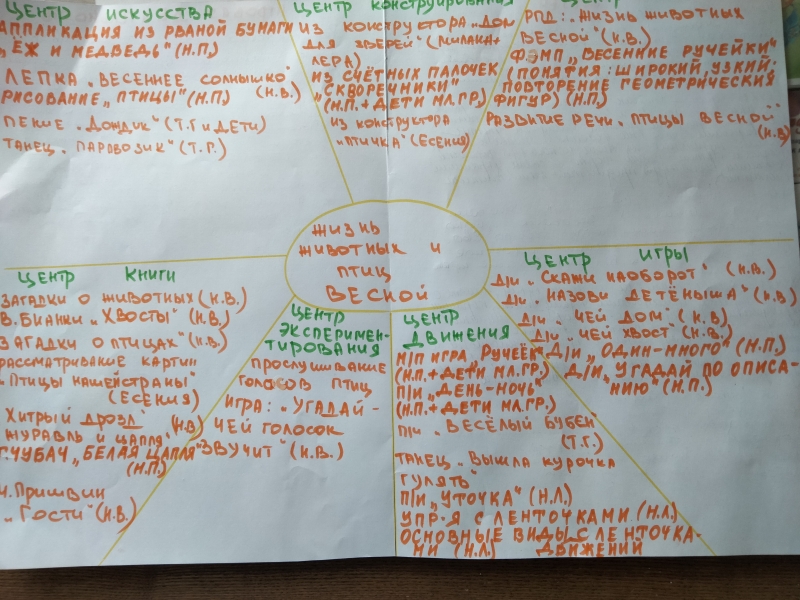 ЦЕНТР ИСКУССТВА
АППЛИКАЦИЯ ИЗ РВАНОЙ БУМАГИ
„ЁЖ И МЕДВЕДЬ" (Н.П.)
ЛЕПКА „ВЕСЕННЕЕ СОЛНЫШКО"
(Н.В.)
РИСОВАНИЕ „ПТИЦЫ" (Н.П)
ПЕНИЕ „ДОЖДИК" (Т.Г И ДЕТИ)
ТАНЕЦ „ПАРОВОЗИК" (Т.Г.)
ЦЕНТР КОНСТРУИРОВАНИЯ
ИЗ КОНСТРУКТОРА „ДОМ
ДЛЯ ЗВЕРЕЙ" (МИЛАНА+
ЛЕРА)
ИЗ СЧЁТНЫХ ПАЛОЧЕК
„СКВОРЕЧНИКИ"
(Н.П.+ДЕТИ МЛ.ГР.)
ИЗ КОНСТРУКТОРА
„ПТИЧКА" (ЕСЕНИЯ)
РПД: „ЖИЗНЬ ЖИВОТНЫХ
ВЕСНОЙ" (Н.В.)
ФЭМП „ВЕСЕННИЕ РУЧЕЙКИ"
(ПОНЯТИЯ: ШИРОКИЙ, УЗКИЙ;
ПОВТОРЕНИЕ ГЕОМЕТРИЧЕСКИХ
ФИГУР) (Н.П.)
РАЗВИТИЕ РЕЧИ „ПТИЦЫ ВЕСНОЙ"
(Н.В)
ЖИЗНЬ
ЖИВОТНЫХ И
ПТИЦ
ВЕСНОЙ
ЦЕНТР КНИГИ
ЗАГАДКИ О ЖИВОТНЫХ (Н.В.)
В. БИАНКИ „ХВОСТЫ" (Н.В.)
ЗАГАДКИ О ПТИЦАХ" (Н.В.)
РАССМАТРИВАНИЕ КАРТИН
„ПТИЦЫ НАШЕЙ СТРАНЫ"
(ЕСЕНИЯ)
„ХИТРЫЙ ДРОЗД" (Н.В)
ЖУРАВЛЬ И ЦАПЛЯ"
Г. ЧУБАЧ „БЕЛАЯ ЦАПЛЯ"
(Н.П.)
ПРИШВИН
„ГОСТИ" (Н.В.)
ЦЕНТР
ЭКСПЕРИМЕН-
ТИРОВАНИЯ
ПРОСЛУШИВАНИЕ
ГОЛОСОВ ПТИЦ
ИГРА: „УГАДАЙ-
ЧЕЙ ГОЛОСОК
ЗВУЧИТ" (Н.В.)
ЦЕНТР
ДВИЖЕНИЯ
М/П ИГРА „РУЧЕЁК"
(Н.П.+ДЕТИ МЛ.ГР.)
П/И „ДЕНЬ-НОЧЬ"
(Н.П.+ДЕТИ МЛ.ГР.)
П/И „ВЕСЁЛЫЙ БУБЕН"
(Т.Г.)
ТАНЕЦ „ВЫШЛА КУРОЧКА
ГУЛЯТЬ"
П/И „УТОЧКА" (Н.Л.)
УПР-Я С ЛЕНТОЧКАМИ (Н.Л.)
ОСНОВНЫЕ ВИДЫ С ЛЕНТОЧКА-
МИ (Н.Л.) ДВИЖЕНИЙ
ЦЕНТР ИГРЫ
Д/И „СКАЖИ НАОБОРОТ" (Н.В.)
Д/И „НАЗОВИ ДЕТЁНЫША" (Н.В)
Д/И „ЧЕЙ ДОМ" (Н.В.)
Д/И „ЧЕЙ ХВОСТ" (Н.В.)
Д/И „ОДИН-МНОГО" (Н.П.)
Д/И „УГАДАЙ ПО ОПИСА-
НИЮ" (Н.П.)